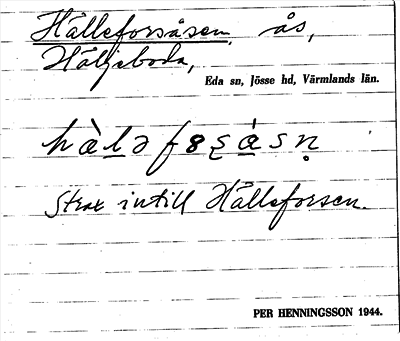 Hälleforsåsen, ås,
Häljeboda,
Eda sn, Jösse hd, Värmlands län.
Strax intill Hälleforsen.
PER HENNINGSSON 1944.